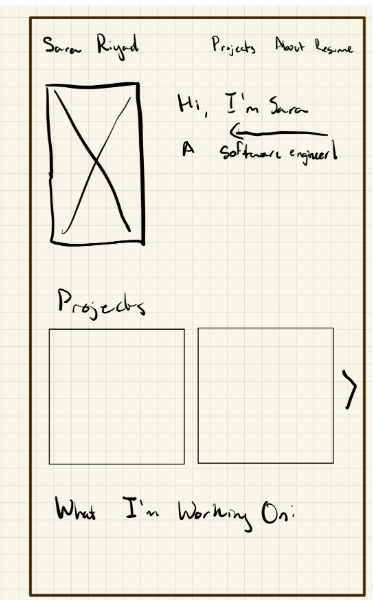 Sara Riyad
Projects About Resume
Hi, I'm Sara
A software engineer
Projects
What I'm Working On: